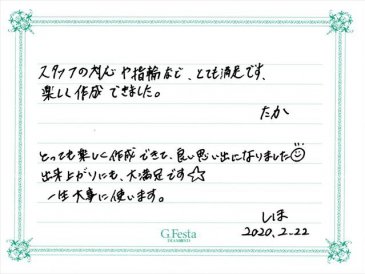 スタッフの対応や指輪など、とても満足です。
楽しく作成できました。
たか
とっても楽しく作成できて、良い思い出になりました
出来上がりにも、大満足です☆
一生大事に使います。
しほ
2020.2.22
G.Festa